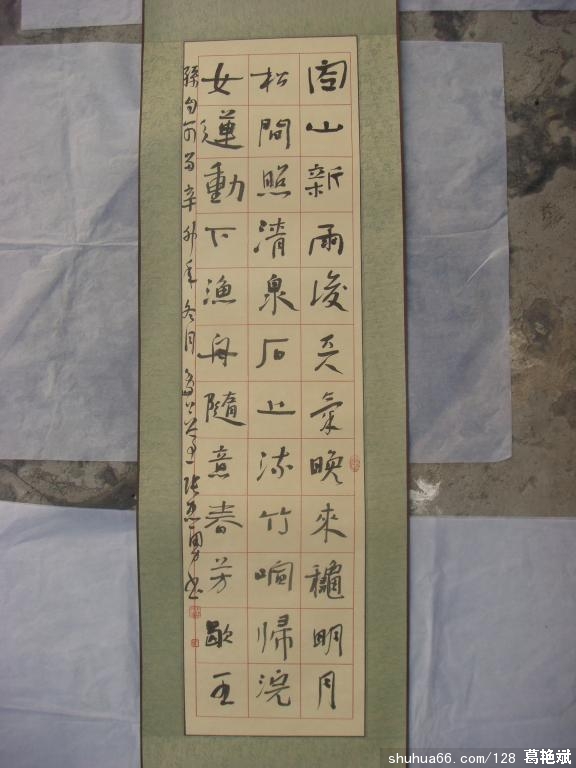 空山新雨後天氣晚來龝明月
松間照清泉石上流竹响帰浣
女蓮動下漁舟隨意春芳歇王
孫自可留辛卯年冬月 书
shuhua66.com/128 葛艳斌